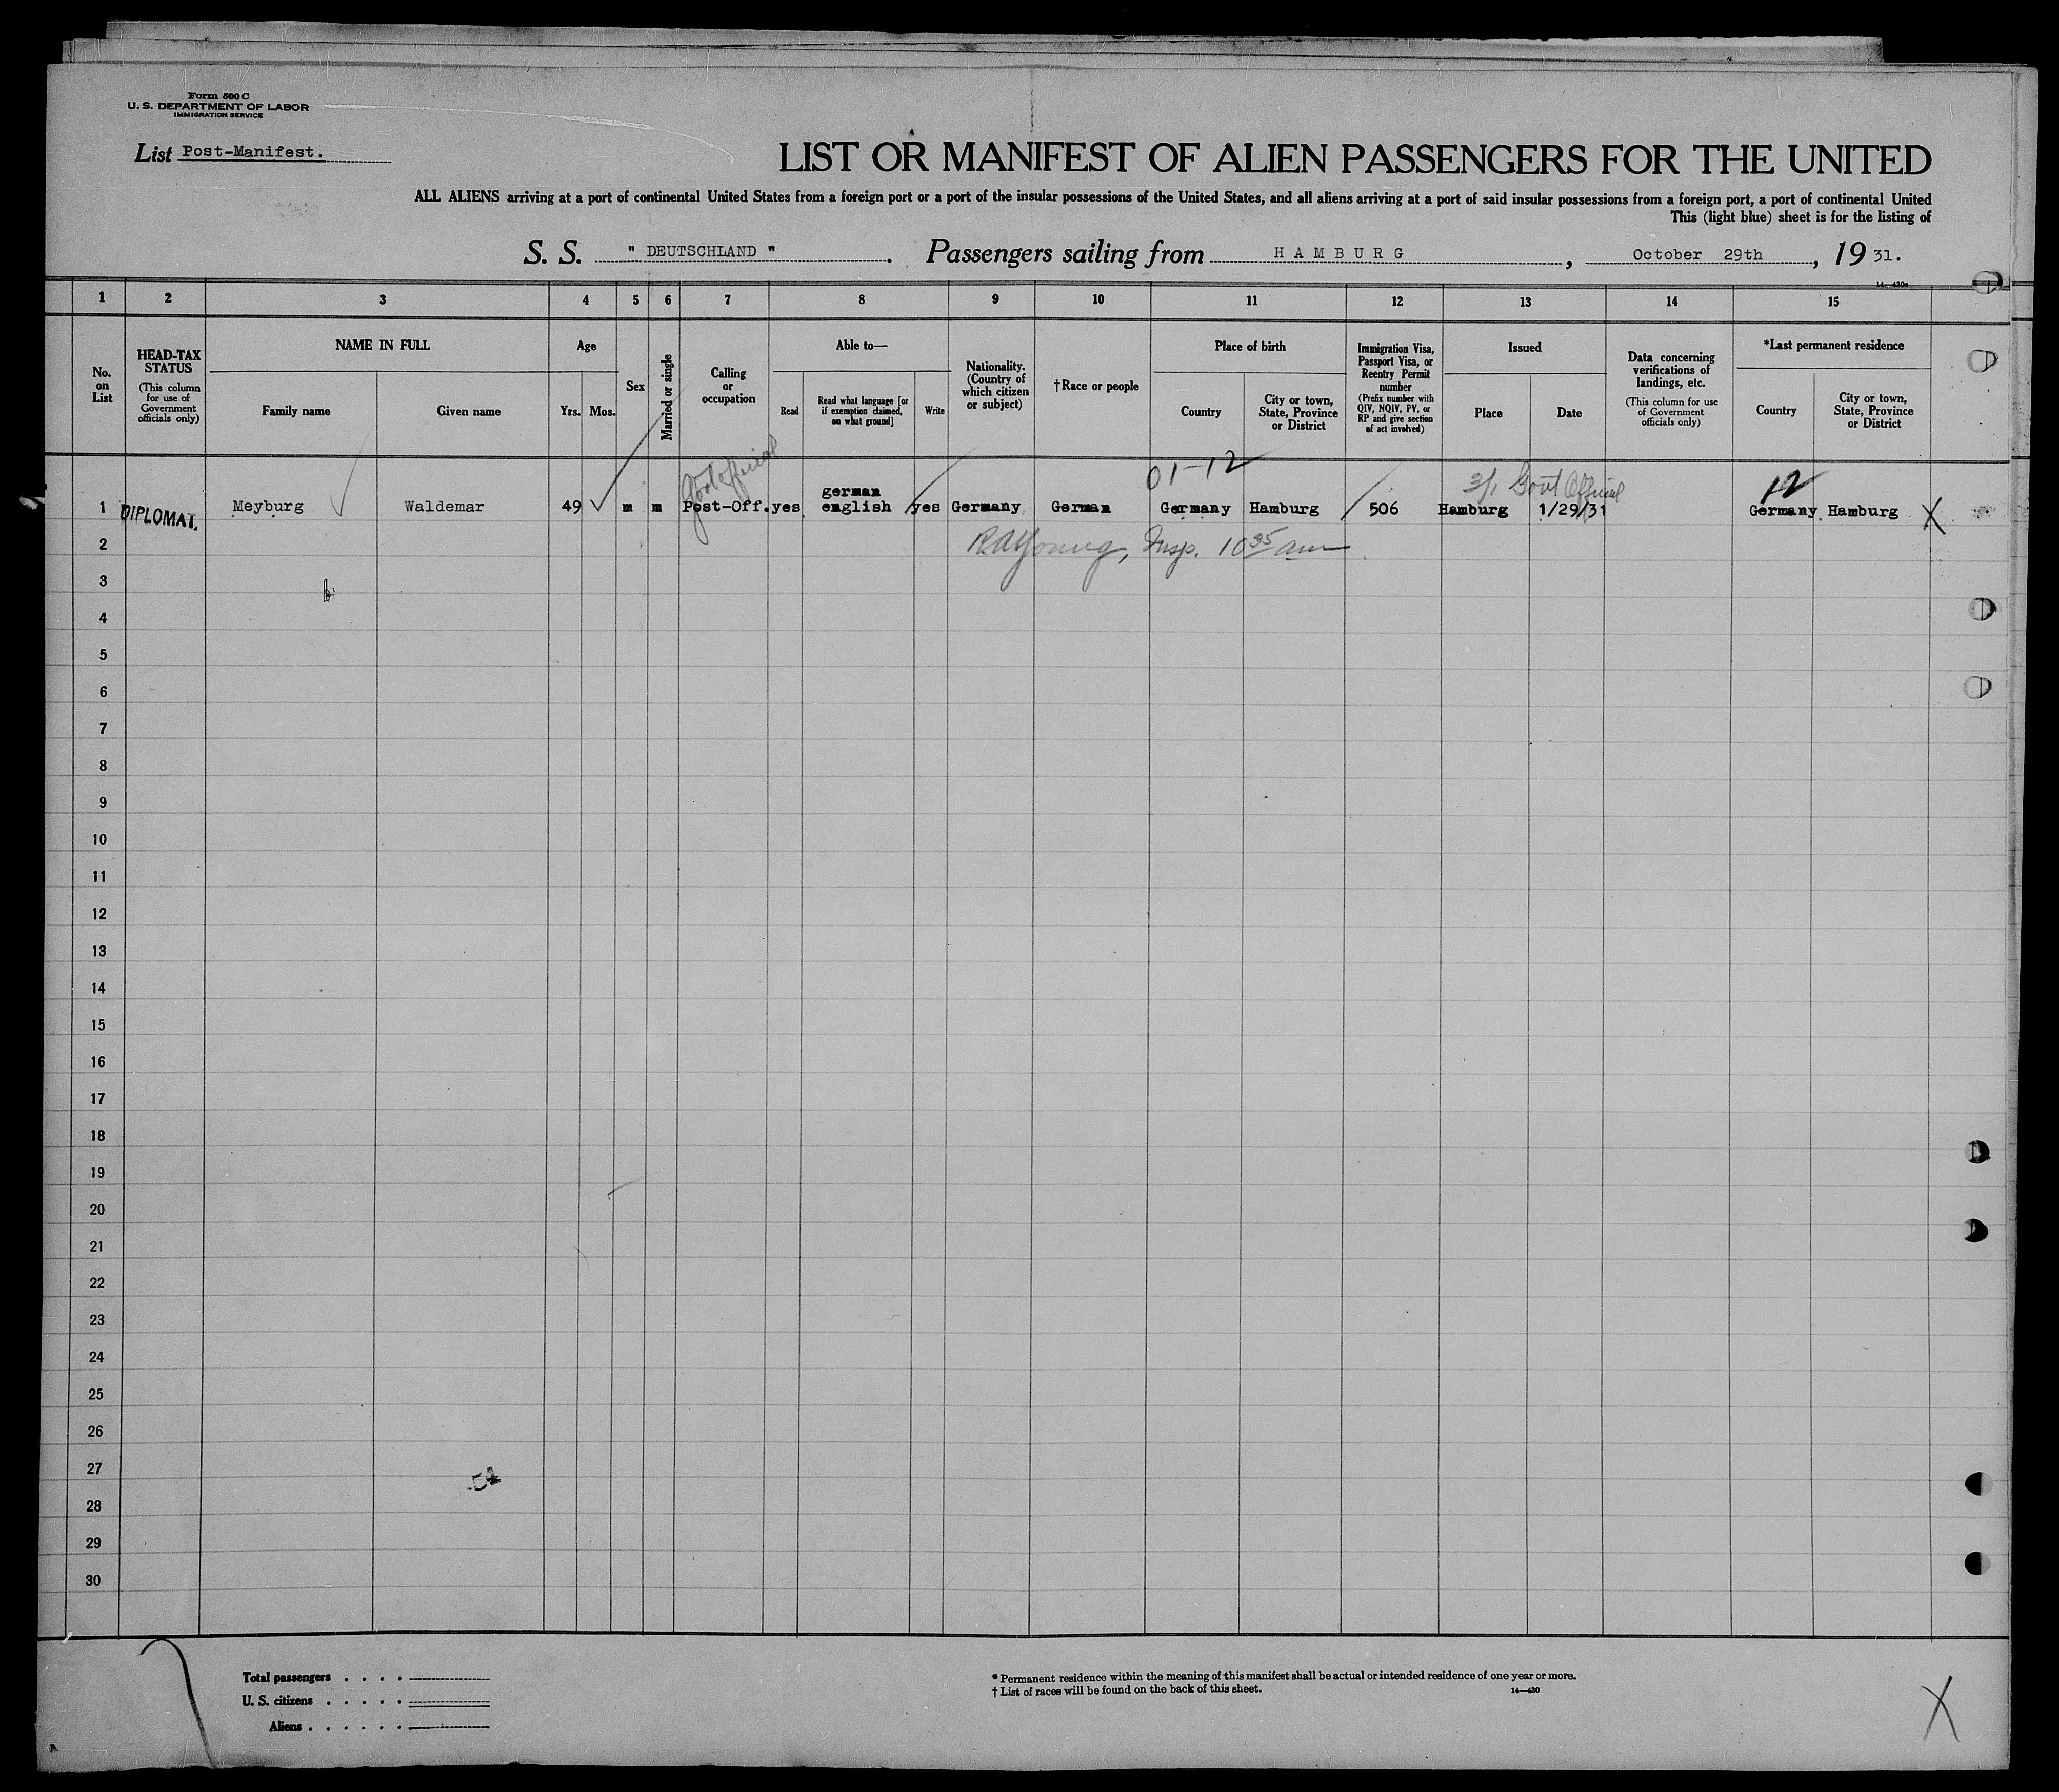 Form 500 C
U. S. DEPARTMENT OF LABOR
IMMIGRATION SERVICE
List Post-Manifest.
LIST OR MANIFEST OF ALIEN PASSENGERS FOR THE UNITED
ALL ALIENS arriving at a port of continental United States from a foreign port or a port of the insular possessions of the United States, and all aliens arriving at a port of said insular possessions from a foreign port, a port of continental United
This (light blue) sheet is for the listing of
S. S. " DEUTSCHLAND " . Passengers sailing from HAMBURG , October 29th , 19 31.
14—430c
1 2 3 4 5 6 7 8 9 10 11 12 13 14 15
No. on List
HEAD-TAX STATUS
(This column for use of Government officials only)
NAME IN FULL
Family name
Given name
Age
Yrs. Mos.
Sex
Married or single
Calling or occupation
Able to—
Read
Read what language [or if exemption claimed, on what ground]
Write
Nationality. (Country of which citizen or subject)
†Race or people
Place of birth
Country
City or town, State, Province or District
Immigration Visa, Passport Visa, or Reentry Permit number
(Prefix number with QIV, NQIV, PV, or RP and give section of act involved)
Issued
Place
Date
Data concerning verifications of landings, etc.
(This column for use of Government officials only)
*Last permanent residence
Country
City or town, State, Province or District
Govt official
01-12
3/1 Govt Official
12
1 DIPLOMAT. Meyburg Waldemar 49 m m Post-Off. yes german english yes Germany German Germany Hamburg 506 Hamburg 1/29/31 Germany Hamburg X
2 RA Young, Insp. 10 35 am
3
4
5
6
7
8
9
10
11
12
13
14
15
16
17
18
19
20
21
22
23
24
25
26
27
28
29
30
Total passengers . . . .
U. S. citizens . . . . .
Aliens . . . . . .
* Permanent residence within the meaning of this manifest shall be actual or intended residence of one year or more.
† List of races will be found on the back of this sheet.
14—430
X